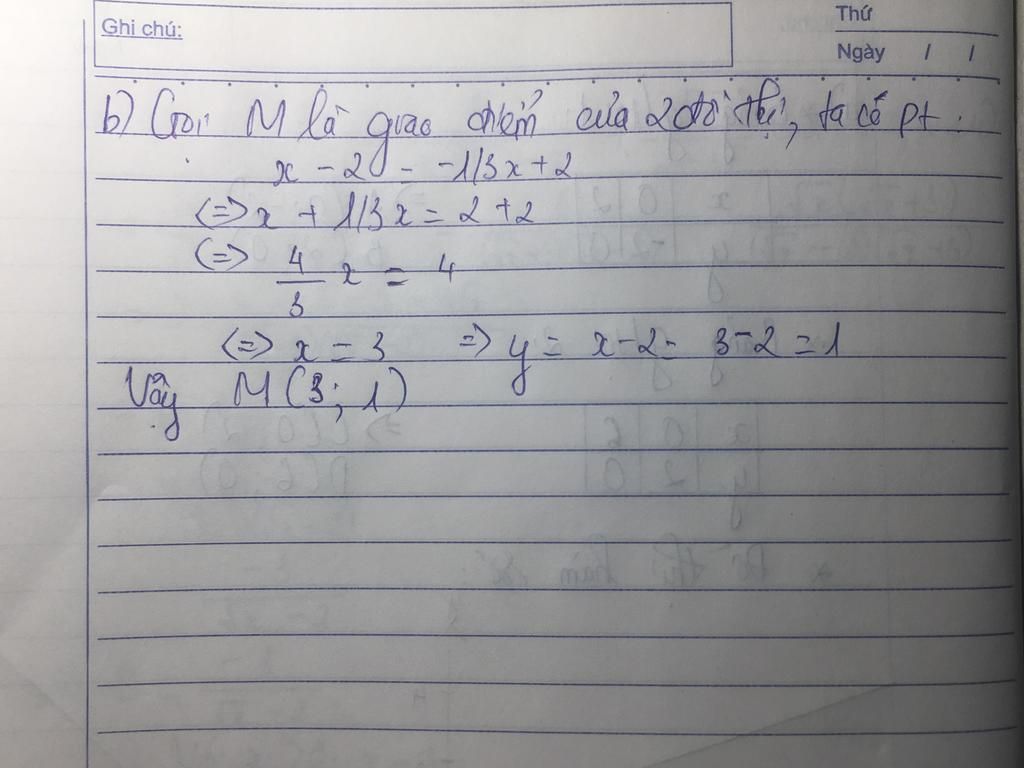 Ghi chú:
Thứ
Ngày / /
b) Gọi M là giao điểm của 2 đồ thị, ta có pt:
x - 2 = -1/3x + 2
<=> x + 1/3x = 2 + 2
<=> 4/3 x = 4
<=> x = 3 => y = x - 2 = 3 - 2 = 1
Vậy M(3; 1)